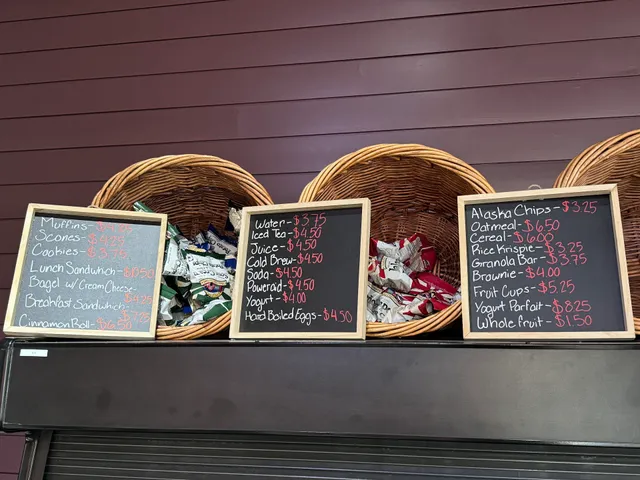 Muffins-
Scones-
Cookies- $3.75
Lunch Sandwhich-
Bagel w/Cream Cheese-
Breakfast Sandwhich-
Cinnamon Roll-
Water-$3.75
Iced Tea-$4.50
Juice-$4.50
Cold Brew-$4.50
Soda-$4.50
Powerad-$4.50
Yogurt-$4.00
Hard Boiled Eggs-$4.50
Alaska Chips-$3.25
Oatmeal-$6.50
Cereal-$6.00
Rice Krispie-$3.25
Granola Bar-$3.75
Brownie-$4.00
Fruit Cups-$5.25
Yogurt Parfait-$8.25
Whole fruit-$1.50